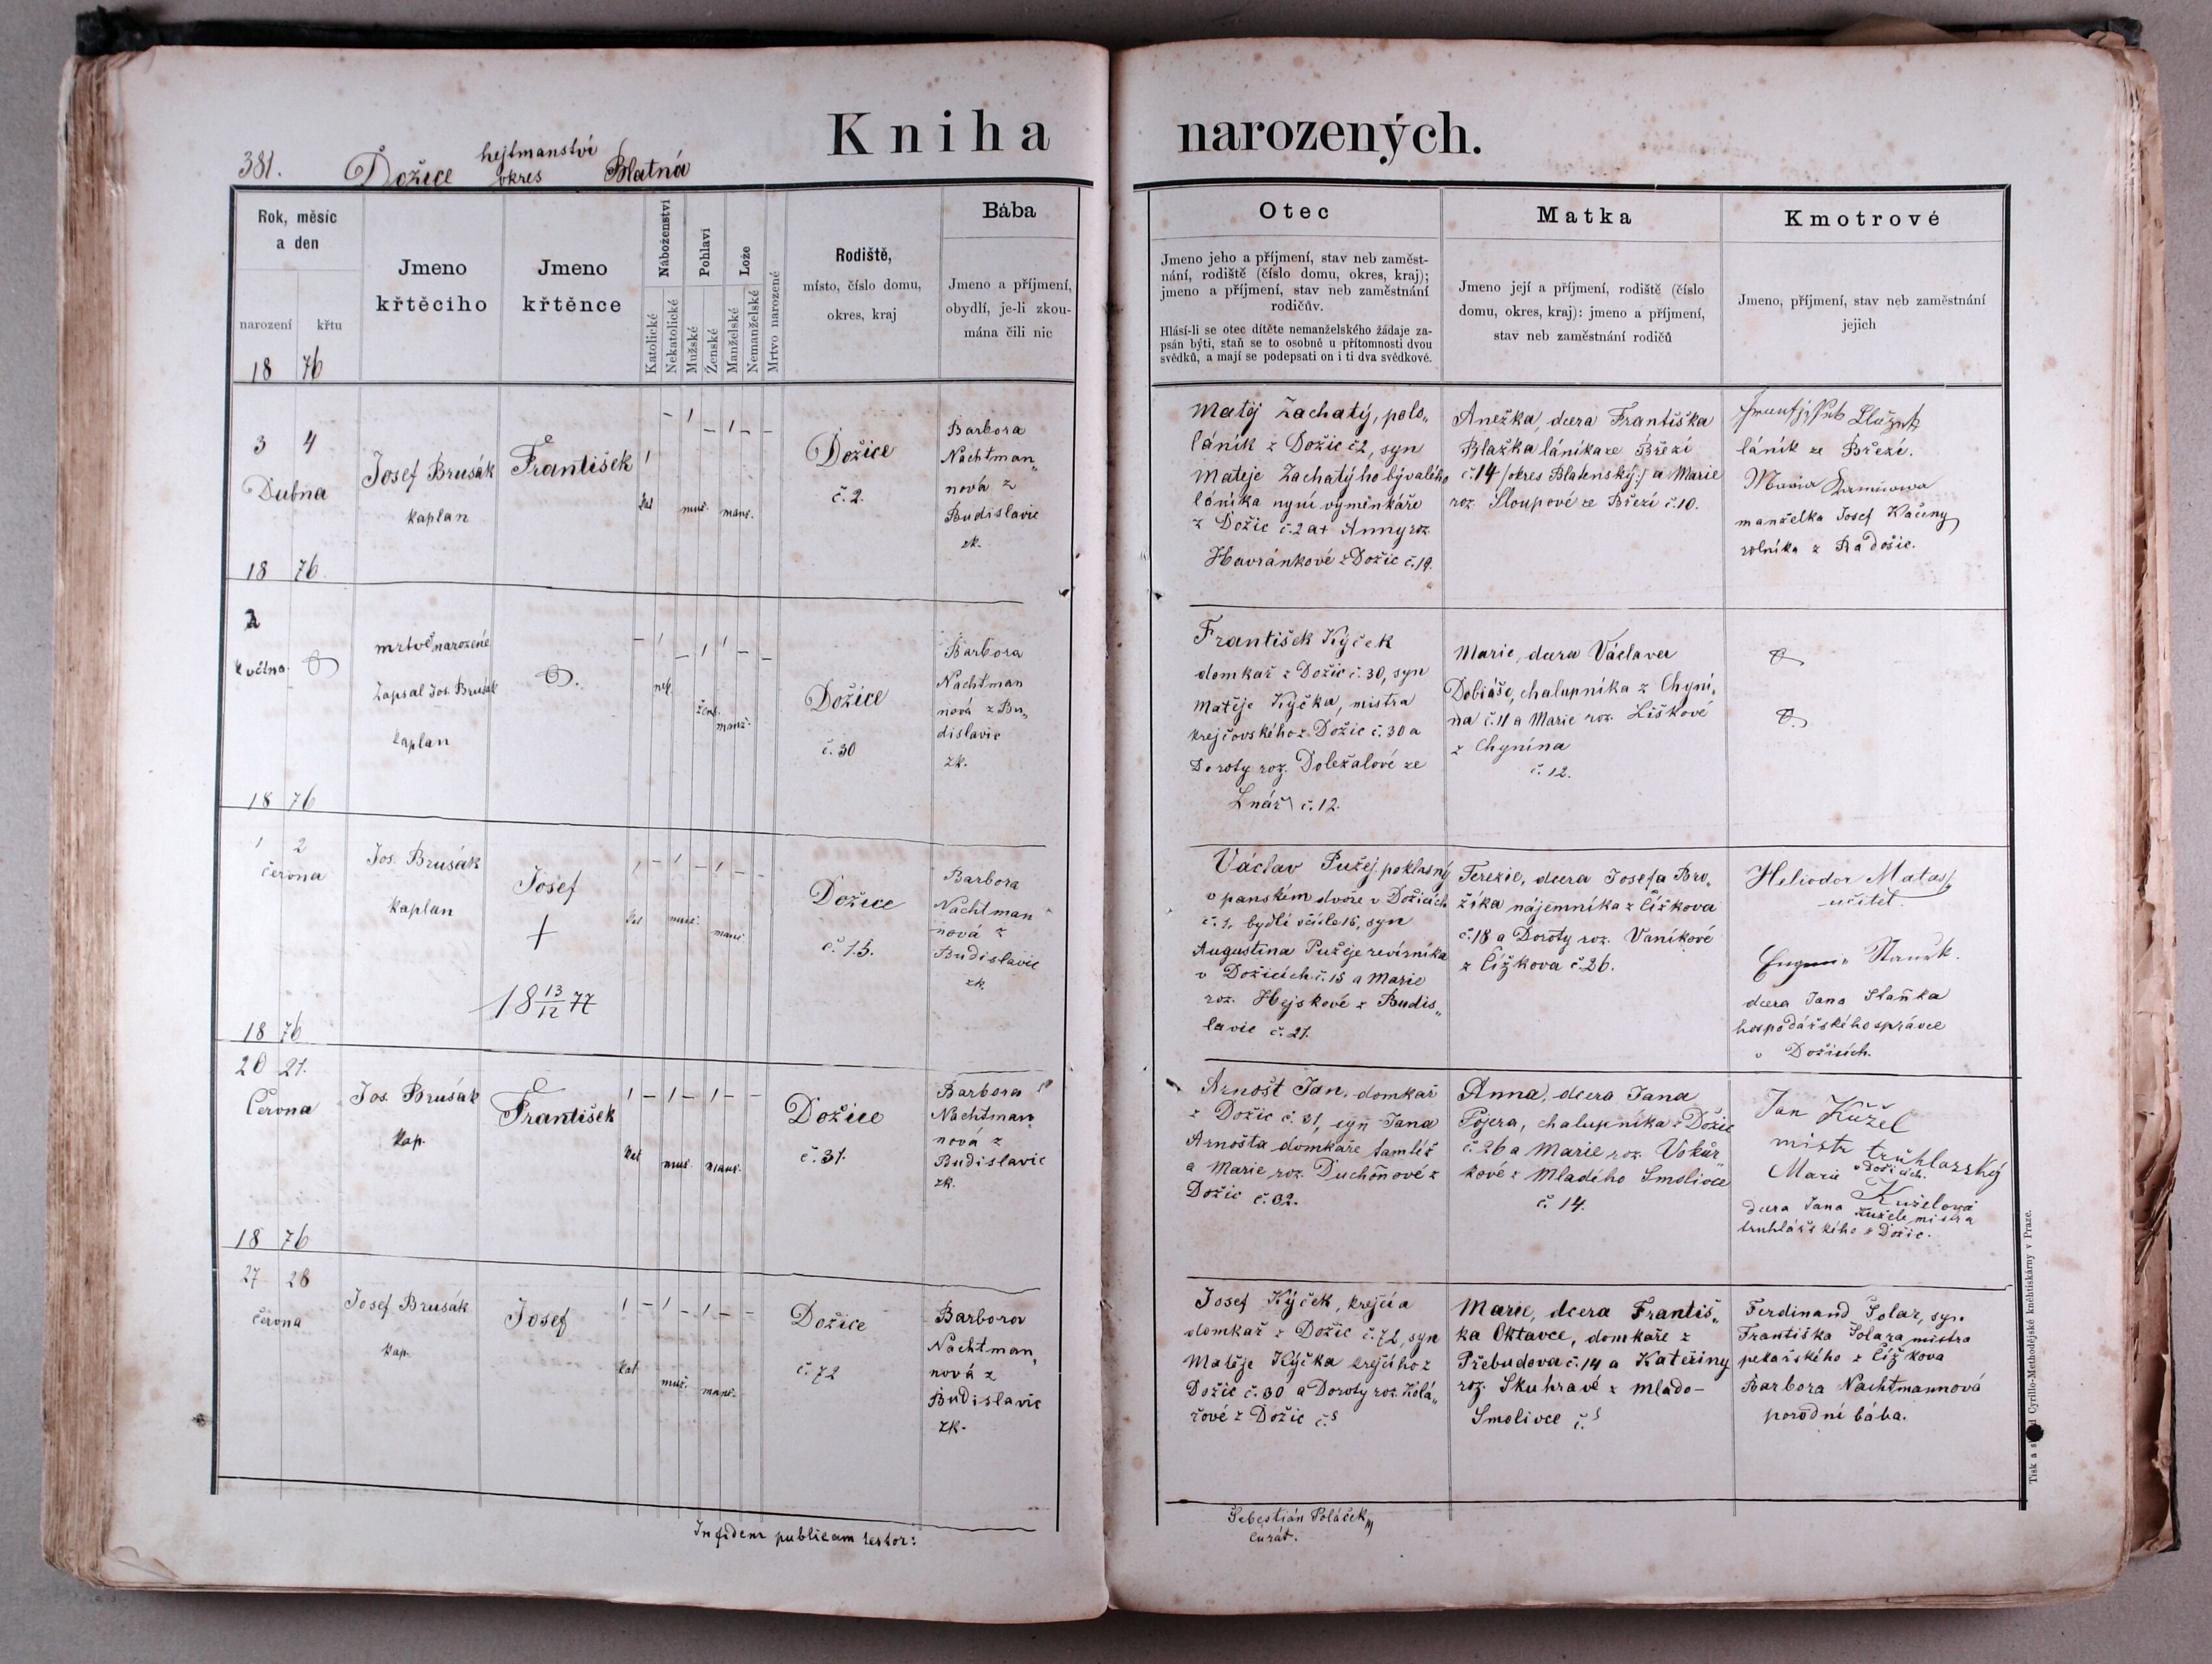 Kniha narozených.
381. Dožice hejtmanství okres Blatná
Rok, měsíc
a den
narození křtu
Jmeno
křtěcího
Jmeno
křtěnce
Náboženství
Katolické
Nekatolické
Pohlaví
Mužské
Ženské
Lože
Manželské
Nemanželské
Mrtvo narozené
Rodiště,
místo, číslo domu,
okres, kraj
Bába
Jmeno a příjmení,
obydlí, je-li zkou-
mána čili nic
Otec
Jmeno jeho a příjmení, stav neb zaměst-
nání, rodiště (číslo domu, okres, kraj);
jmeno a příjmení, stav neb zaměstnání
rodičův.
Hlásí-li se otec dítěte nemanželského žádaje za-
psán býti, staň se to osobně u přítomnosti dvou
svědků, a mají se podepsati on i ti dva svědkové.
Matka
Jmeno její a příjmení, rodiště (číslo
domu, okres, kraj): jmeno a příjmení,
stav neb zaměstnání rodičů
Kmotrové
Jmeno, příjmení, stav neb zaměstnání
jejich
18 76
3 4
Dubna
Josef Brusák
kaplan
František
- 1 - 1 - -
1
kat muž. manž.
Dožice
č. 2.
Barbora
Nachtman„
nová z
Budislavic
zk.
Matěj Zachatý, polo„
láník z Dožic č2, syn
Mateje Zachatýho bývalého
láníka nyní výměnkáře
z Dožic č.2 a+ Anny roz.
Havránkové z Dožic č.19.
Anežka, dcera Františka
Blažka láníka ze Březí
č.14 /:okres Blatenský:/ a Marie
roz. Sloupové ze Březí č.10.
láník ze Březí.
manželka Josef Kačeny
rolníka z Radošic.
18 76.
2
května.
mrtvě narozené
Zapsal Jos. Brusák
kaplan
- 1 - 1 1 - -
nek. žens. manž.
Dožice
č. 30
Barbora
Nachtman
nová z Bu„
dislavic
zk.
František Kýček
domkař z Dožic č. 30, syn
Matěje Kýčka, mistra
krejčovského z Dožic č. 30 a
Doroty roz. Doležalové ze
Lnář č. 12.
Marie, dcera Václava
Dobiáše, chalupníka z Chyní„
na č.11 a Marie roz. Liškové
z Chynína
č. 12.
18 76
1 2
června
Jos. Brusák
kaplan
Josef
+
18 13/12 77
1 - 1 - 1 - -
kat muž. manž.
Dožice
č. 15.
Barbora
Nachtman
nová z
Budislavic
zk.
Václav Pužej, poklasný
v panském dvoře v Dožicích
č. 1, bydlí v čísle 15, syn
Augustina Pužeje revírníka
v Dožicích č. 15 a Marie
roz. Hejskové z Budis„
lavic č. 21.
Terezie, dcera Josefa Bro„
žíka nájemníka z Čížkova
č.18 a Doroty roz. Vaníkové
z Čížkova č.26.
Heliodor Matas
učitel.
dcera Jana Staňka
hospodářského správce
v Dožicích.
18 76
20 21.
Června
Jos. Brusák
kap.
František
1 - 1 - 1 - -
kat muž. manž.
Dožice
č. 31.
Barbora
Nachtman„
nová z
Budislavic
zk.
Arnošt Jan, domkař
z Dožic č. 31, syn Jana
Arnošta domkaře tamtéž
a Marie roz. Duchoňové z
Dožic č. 32.
Anna, dcera Jana
Pojera, chalupníka z Dožic
č. 26 a Marie roz. Vokur„
kové z Mladého Smolivce
č. 14.
Jan Kůžel
mistr truhlarský
v Dožicích.
Marie Kuželová
dcera Jana Kužele mistra
truhlářského z Dožic.
18 76
27 28
června
Josef Brusák
kap.
Josef
1 - 1 - 1 - -
kat muž. manž.
Dožice
č. 72
Barbora
Nachtman„
nová z
Budislavic
zk.
Josef Kýček, krejčí a
domkař z Dožic č. 72, syn
Matěje Kýčka krejčího z
Dožic č. 30 a Doroty roz. Kolá„
řové z Dožic č.
Marie, dcera Františ„
ka Oktavce, domkaře z
Přebudova č. 14 a Kateřiny
roz. Skuhravé z Mlado-
Smolivce č.
Ferdinand Šolar, syn
Františka Šolara mistra
pekařského z Čížkova
Barbora Nachtmannová
porodní bába.
In fidem publicam testor:
Šebestián Poláček
curát.
Tisk a sklad Cyrillo-Methodějské knihtiskárny v Praze.